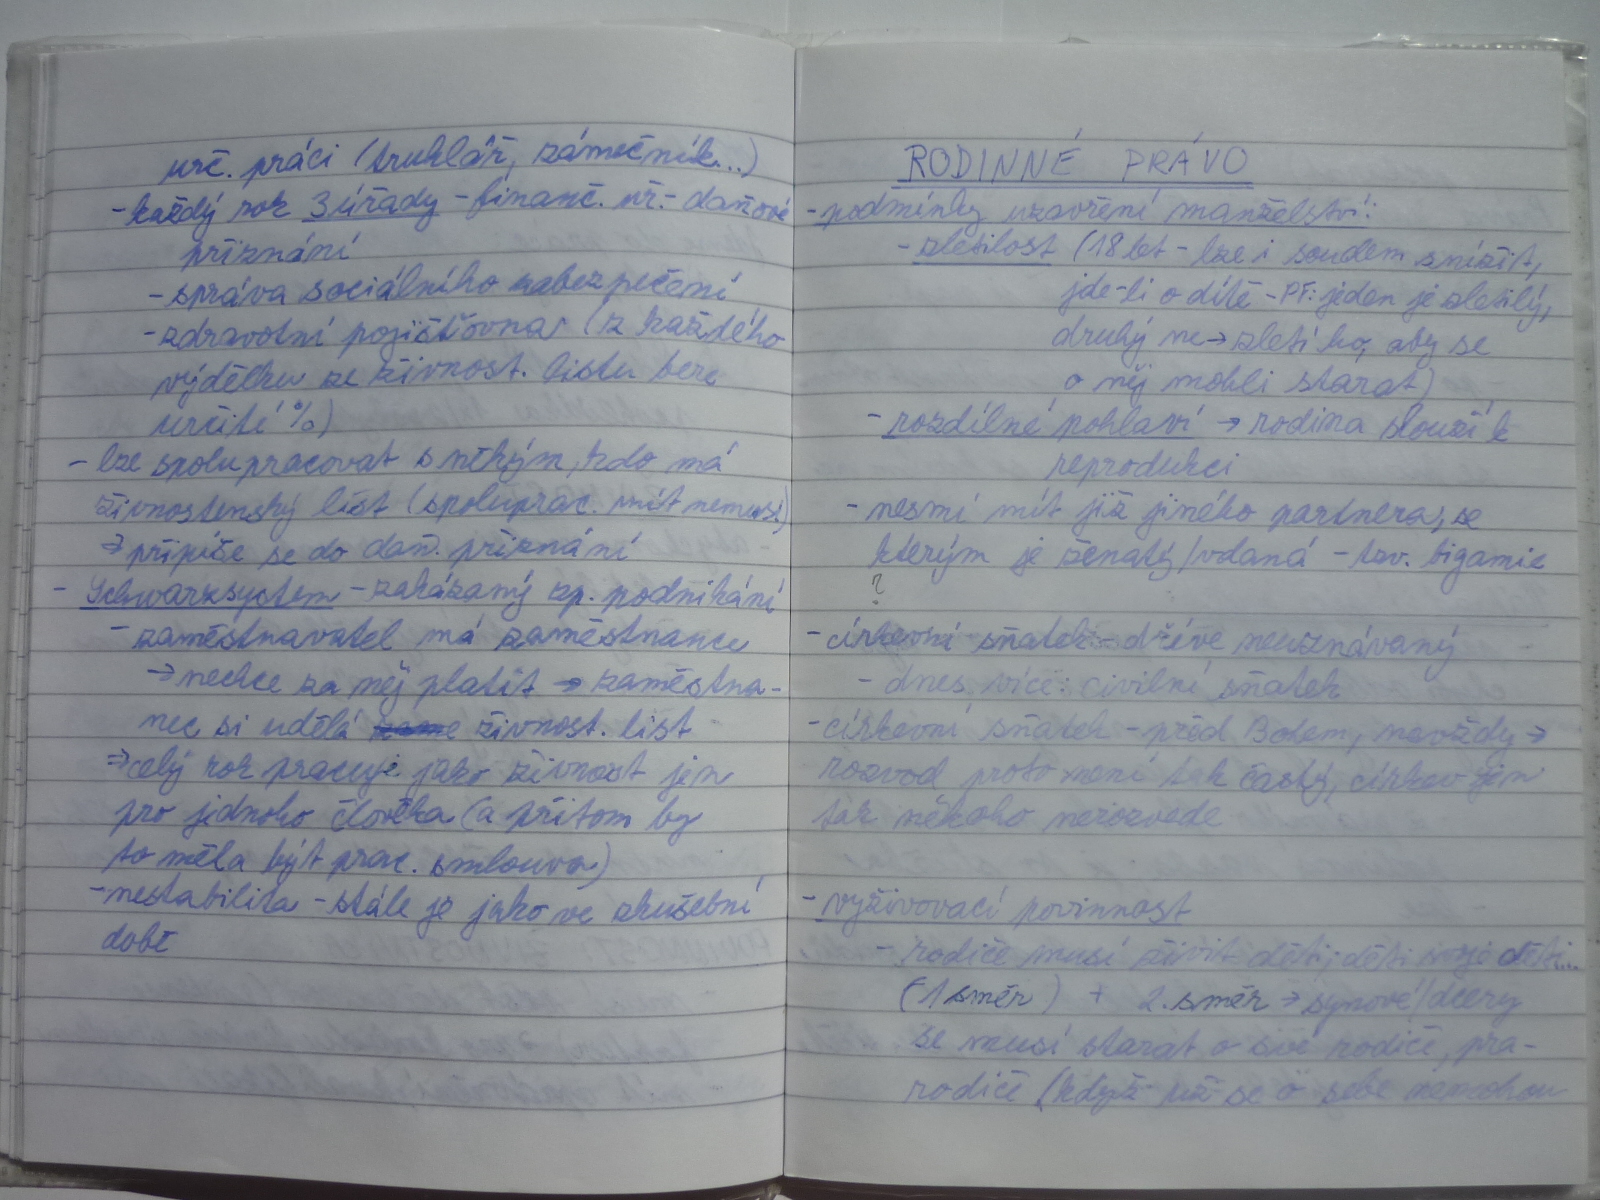 urč. práci (truhlář, zámečník...)
- každý rok 3 úřady - financ. úř. - daňové
přiznání
- správa sociálního zabezpečení
- zdravotní pojišťovna (z každého
výdělku ze živnost. listu bere
určité %)
- lze spolupracovat s někým, kdo má
živnostenský list (spoluprac. mít nemusí)
⇒ připíše se do daň. přiznání
- Schwarzsystem - zakázaný zp. podnikání
- zaměstnavatel má zaměstnance
→ nechce za něj platit → zaměstna-
nec si udělá živnost. list
⇒ celý rok pracuje jako živnost jen
pro jednoho člověka (a přitom by
to měla být prac. smlouva)
- nestabilita - stále je jako ve zkušební
době
RODINNÉ PRÁVO
- podmínky uzavření manželství:
- zletilost (18 let - lze i soudem snížit,
jde-li o dítě - Př: jeden je zletilý,
druhý ne → zletí ho, aby se
o něj mohli starat)
- rozdílné pohlaví → rodina slouží k
reprodukci
- nesmí mít již jiného partnera, se
kterým je ženatý/vdaná - tzv. bigamie
?
- církevní sňatek - dříve neuznávaný
- dnes více: civilní sňatek
- církevní sňatek - před Bohem, navždy →
rozvod proto není tak častý, církev jen
tak někoho nerozvede
- vyživovací povinnost
- rodiče musí živit děti, děti svoje děti...
(1 směr) + 2. směr → synové/dcery
se musí starat o své rodiče, pra-
rodiče (když už se o sebe nemohou